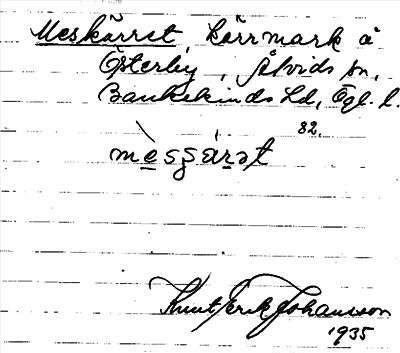 Meskärret, kärrmark å
Österby, Åtvids sn,
Bankekinds hd, Ögl. l.
82.
mèsʂáṛət
Knut Erik Johansson
1935